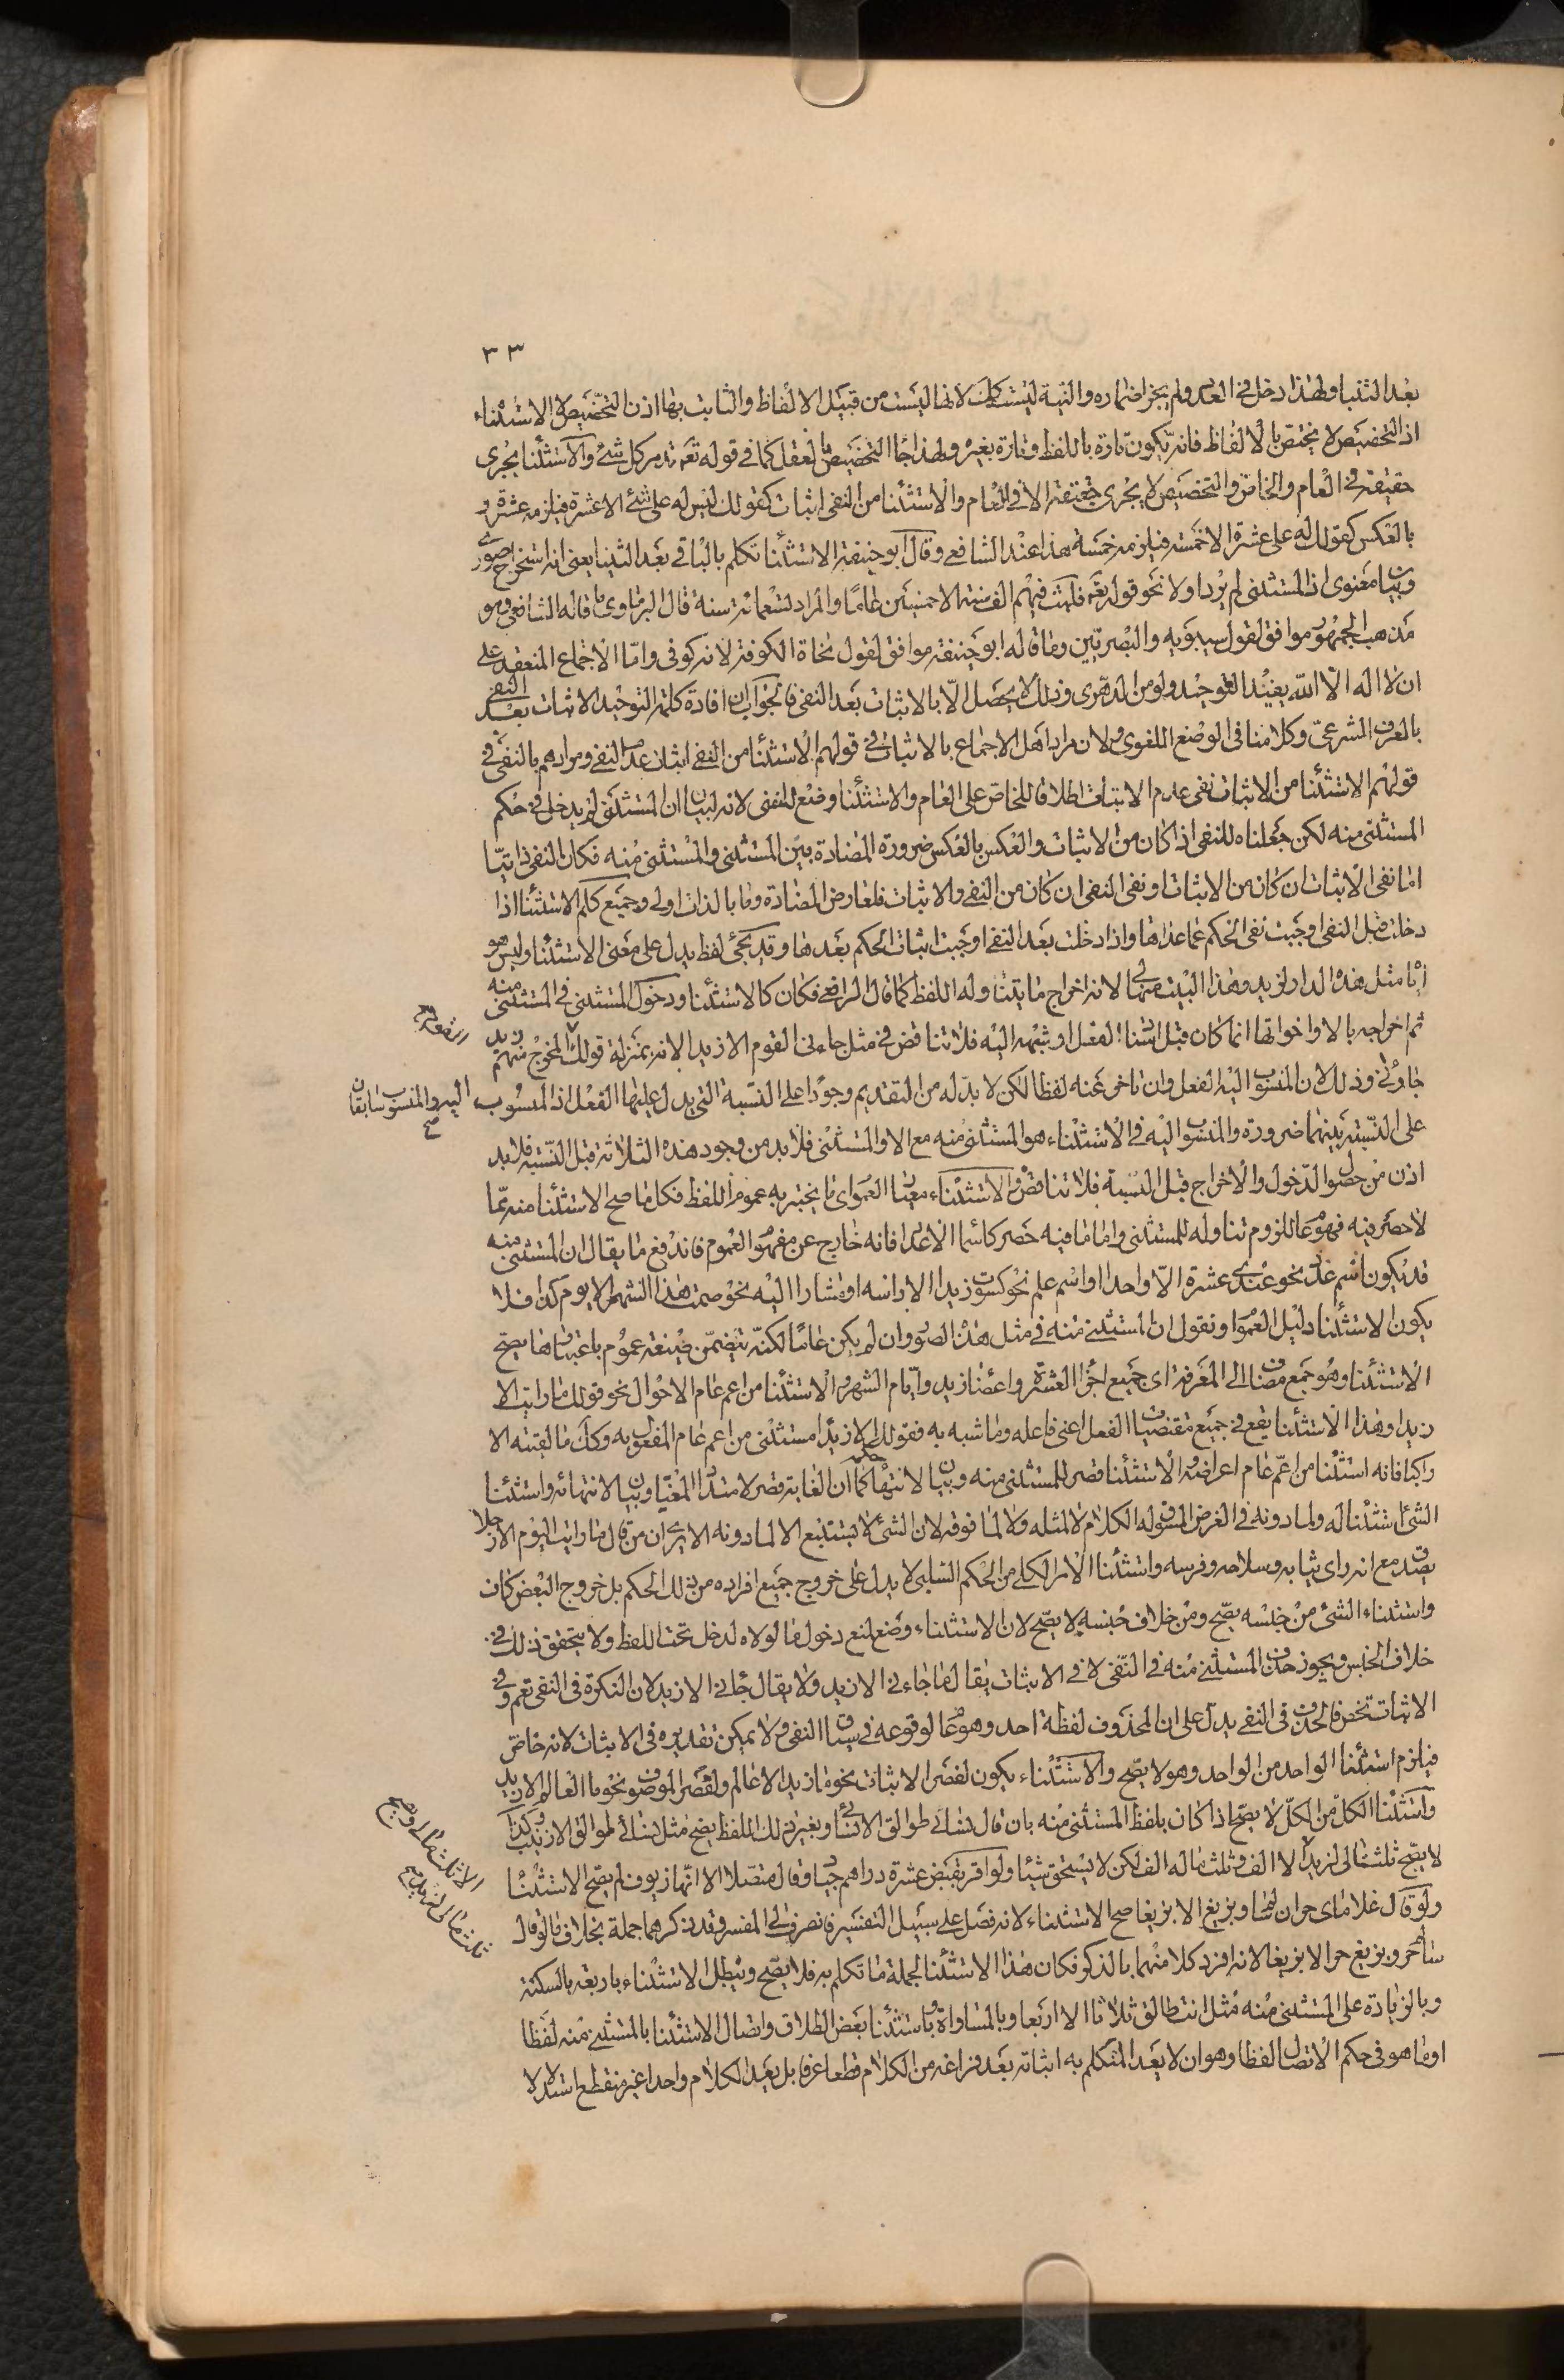 ٣٣
بعد الثنيا ولهذا دخل في العدد ولم يجز اضماره والنية ليست كذلك لانها ليست من قبيل الالفاظ والثابت بها اذن التخصيص لا الاستثناء
اذ التخصيص لا يختص بالالفاظ فانه يكون تارة باللفظ وتارة بغيره ولهذا جاء التخصيص بالعقل كما في قوله تعه تدمر كل شئ والاستثنا يجرى
حقيقة في العام والخاص والتخصيص لا يجرى حقيقة الا في العام والاستثنا من النفى اثبات كقولك ليس له على شئ الا عشرة فيلزمه عشرة و
بالعكس كقولك له على عشرة الا خمسة فيلزمه خمسة هذا عند الشافعي وقال ابو حنيفة الاستثنا تكلم بالباقى بعد الثنيا يعنى انه استخراج صورى
وبيان معنوى اذ المستثنى لم يرد اولا نحو قوله تعه فلبث فيهم الف سنة الا خمسين عاما والمراد تسعمائة سنة قال البرماوى ما قاله الشافعى وهو
مذهب الجمهور موافق لقول سيبويه والبصريين وما قاله ابو حنيفة موافق لقول نحاة الكوفة لانه كوفى واما الاجماع المنعقد على
ان لا اله الا الله يفيد التوحيد ولو من الدهرى وذلك لا يحصل الا بالاثبات بعد النفى فالجواب ان افادة كلمة التوحيد الاثبات بعد النفى
بالعرف الشرعى وكلامنا فى الوضع اللغوى ولان مراد اهل الاجماع بالاثبات في قولهم الاستثنا من النفى اثبات عدم النفى ومرادهم بالنفى في
قولهم الاستثنا من الاثبات نفى عدم الاثبات اطلاقا للخاص على العام والاستثنا وضع للنفى لانه لبيان ان المستثنى لم يدخل في حكم
المستثنى منه لكن جعلناه للنفى اذا كان من الاثبات والعكس بالعكس ضرورة المضادة بين المستثنى والمستثنى منه فكان النفى ذاتيا
اما نفى الاثبات ان كان من الاثبات او نفى النفى ان كان من النفى والاثبات فلعارض المضادة وما بالذات اولى وجميع كلم الاستثنا اذا
دخلت قبل النفى اوجبت نفى الحكم عما عداها واذا دخلت بعد النفى اوجبت اثبات الحكم بعدها وقد يجئ لفظ يدل على معنى الاستثنا وليس هو
اياه مثل هذه الدار لزيد وهذا البيت منها لى لانه اخراج ما يتناوله اللفظ كما قال الرافعى فكان كالاستثنا ودخول المستثنى في المستثنى منه
ثم اخراجه بالا واخواتها انما كان قبل اسناد الفعل او شبهه اليه فلا تناقض في مثل جاءنى القوم الا زيدا لانه بمنزلة قولك المخرج منهم زيد
جاؤنى وذلك لان المنسوب اليه الفعل وان تاخر عنه لفظا لكن لا بد له من التقديم وجودا على النسبة التى يدل عليها الفعل اذ المنسوب
اليه والمنسوب سابقان
صح
على النسبة بينهما ضرورة والمنسوب اليه في الاستثناء هو المستثنى منه مع الا والمستثنى فلا بد من وجود هذه الثلاثة قبل النسبة فلا بد
اذن من حصول الدخول والاخراج قبل النسبة فلا تناقض والاستثناء معيار العموم اى ما يختبر به عموم اللفظ فكل ما صح الاستثنا منه مما
لا حصر فيه فهو عام للزوم تناوله للمستثنى واما ما فيه حصر كاسماء الاعداد فانه خارج عن مفهوم العموم فاندفع ما يقال ان المستثنى منه
قد يكون اسم عدد نحو عندى عشرة الا واحدا او اسم علم نحو كسوت زيدا الا راسه او مشارا اليه نحو صمت هذا الشهر الا يوم كذا فلا
يكون الاستثنا دليل العموم او نقول ان المستثنى منه في مثل هذه الصور وان لم يكن عاما لكنه يتضمن صيغة عموم باعتبارها يصح
الاستثنا وهو جمع مضاف الى المعرفة اى جميع اجزاء العشرة واعضاء زيد وايام الشهر والاستثنا من اعم عام الاحوال نحو قولك ما رايت الا
زيدا وهذا الاستثنا يقع في جميع مقتضيات الفعل اعنى فاعله وما شبه به فقولك الا زيدا مستثنى من اعم عام المفعول به وكذا ما لقيته الا
راكبا فانه استثنا من اعم عام اعراضه والاستثنا قصر للمستثنى منه وبيان لانتهاء حكمه كما ان الغاية قصر لامتداد المغيا وبيان لانتهائه واستثنا
الشئ استثنا له ولما دونه في الغرض المسوق له الكلام لا لمثله ولا لما فوقه لان الشئ لا يستتبع الا لما دونه الا يرى ان من قال ما رايت اليوم الا رجلا
يصدق مع انه راى ثيابه وسلاحه وفرسه واستثنا الامر الكلى من الحكم السلبى لا يدل على خروج جميع افراده من ذلك الحكم بل خروج البعض كاف
واستثناء الشئ من جنسه يصح ومن خلاف جنسه لا يصح لان الاستثناء وضع لمنع دخول ما لولاه لدخل تحت اللفظ ولا يتحقق ذلك في
خلاف الجنس ويجوز حذف المستثنى منه في النفى لا في الاثبات يقال ما جاءنى الا زيد ولا يقال جاءنى الا زيد لان النكرة في النفى تعم وفي
الاثبات تخص فالحذف في النفى يدل على ان المحذوف لفظة احد وهو عام لوقوعه في سياق النفى ولا يمكن تقديره في الاثبات لانه خاص
فيلزم استثنا الواحد من الواحد وهو لا يصح والاستثناء يكون لقصر الاثبات نحو ما زيد الا عالم ولقصر الموصوف نحو ما العالم الا زيد
واستثنا الكل من الكل لا يصح اذا كان بلفظ المستثنى منه بان قال نسائى طوالق الا نسائى وبغير ذلك اللفظ يصح مثل نسائى طوالق الا زينب وكذا
لا يصح ثلث مالى لزيد الا الف وثلث ماله الف لكن لا يستحق شيئا ولو اقر بقبض عشرة دراهم جياد وقال متصلا الا انها زيوف لم يصح الاستثنا
الا ثلث مالى ويصح
ثلث مالى لزيد صح
ولو قال غلاماى حران سالم وبزيغ الا بزيغا صح الاستثناء لانه فصل على سبيل التفسير فانصرف الى المفسر وقد ذكرهما جملة بخلاف ما لو قال
سالم حر وبزيغ حر الا بزيغا لانه افرد كلا منهما بالذكر فكان هذا الاستثنا لجملة ما تكلم به فلا يصح ويبطل الاستثناء باربعة بالسكتة
وبالزيادة على المستثنى منه مثل انت طالق ثلاثا الا اربعا وبالمساواة وباستثنا بعض الطلاق واتصال الاستثنا بالمستثنى منه لفظا
او ما هو في حكم الاتصال لفظا وهو ان لا يعد المتكلم به اتيانه بعد فراغه من الكلام قطعا عرفا بل يعد الكلام واحدا غير منقطع